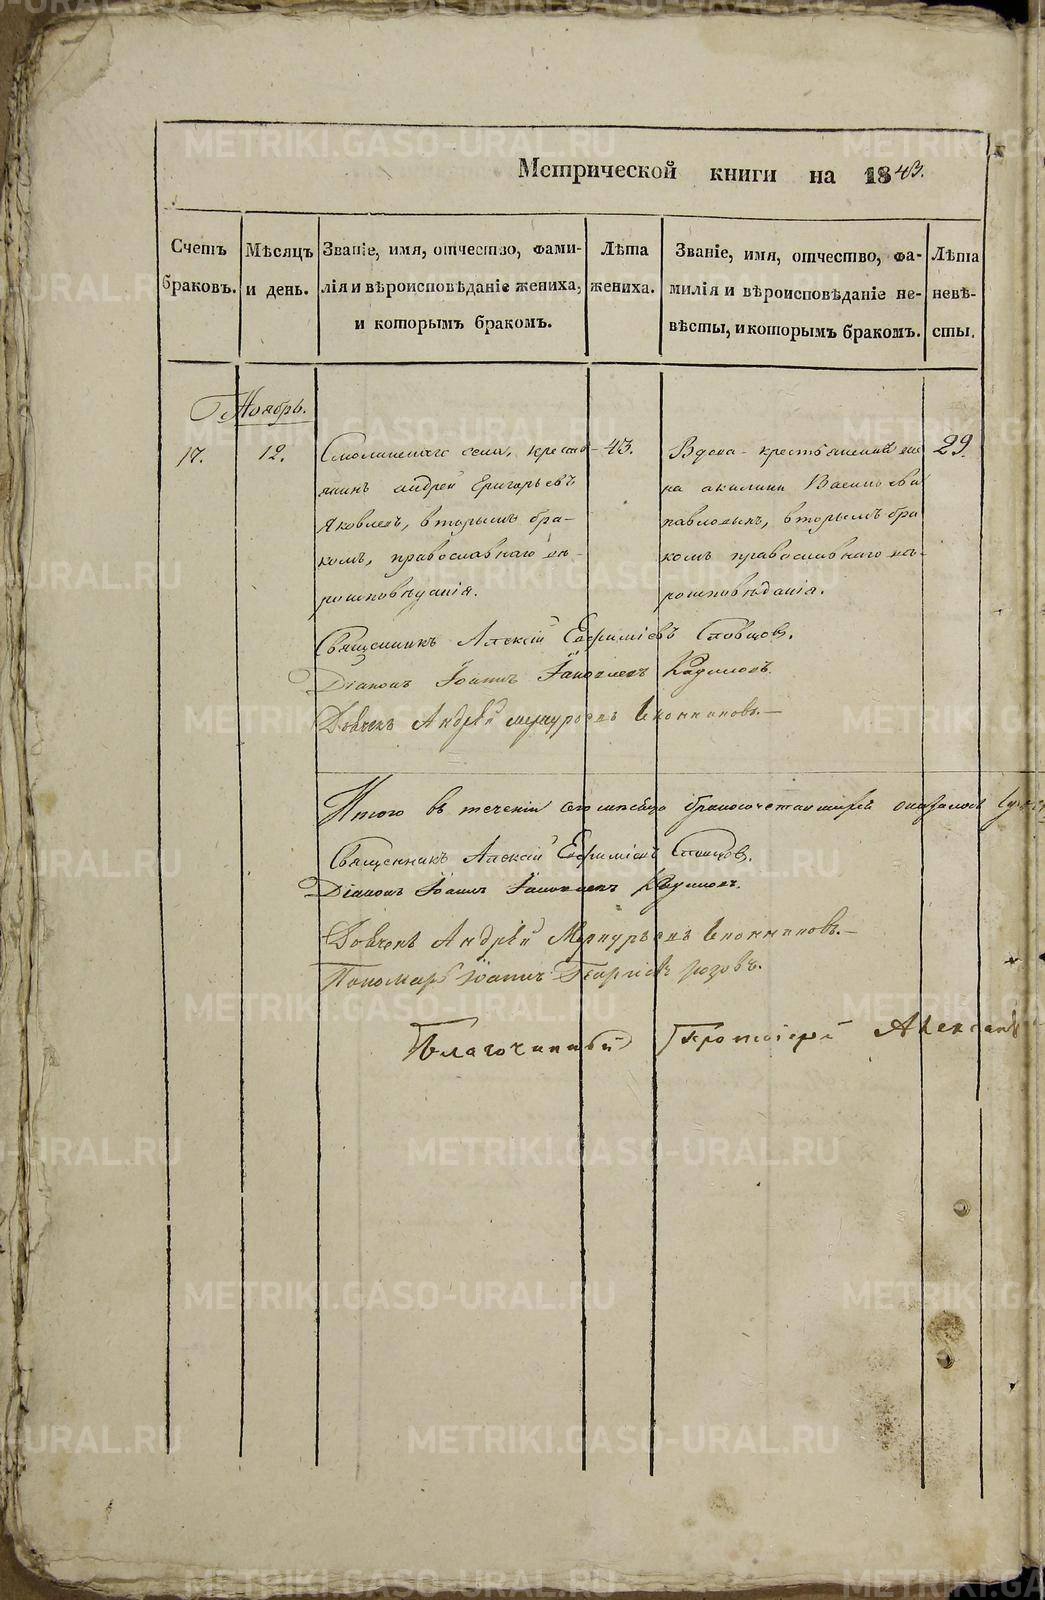 Метрической книги на 1843.
Счетъ браковъ.
Мѣсяцъ и день.
Званіе, имя, отчество, фами-
лія и вѣроисповѣданіе жениха,
и которымъ бракомъ.
Лѣта жениха.
Званіе, имя, отчество, фа-
милія и вѣроисповѣданіе не-
вѣсты, и которымъ бракомъ.
Лѣта невѣ-
сты.
Ноябрь.
17.
12.
Смолинскаго села, кресть-
янинъ андрей Григорьевъ
Яковлевъ, вторымъ бра-
комъ, православнаго вѣ-
роисповѣданія.
43.
Вдова крестьянская
акилина Васильева
вторымъ бра
комъ православнаго вѣ-
роисповѣданія.
29.
Священникъ Алексій Евфиміевъ Словцовъ.
Діаконъ Іоаннъ Іаковлевъ Кадиловъ.
Дьячекъ Андрей Меркурьевъ Иконниковъ.—
Итого въ теченіи сего мѣсяца бракосочетавшихся оказалось
Священникъ Алексій Евфиміевъ Словцовъ.
Діаконъ Іоаннъ Іаковлевъ Кадиловъ.
Дьячекъ Андрей Меркурьевъ Иконниковъ.—
Пономарь Іоаннъ Георгіевъ
Благочинный Протоіерей Алексан
METRIKI.GASO-URAL.RU